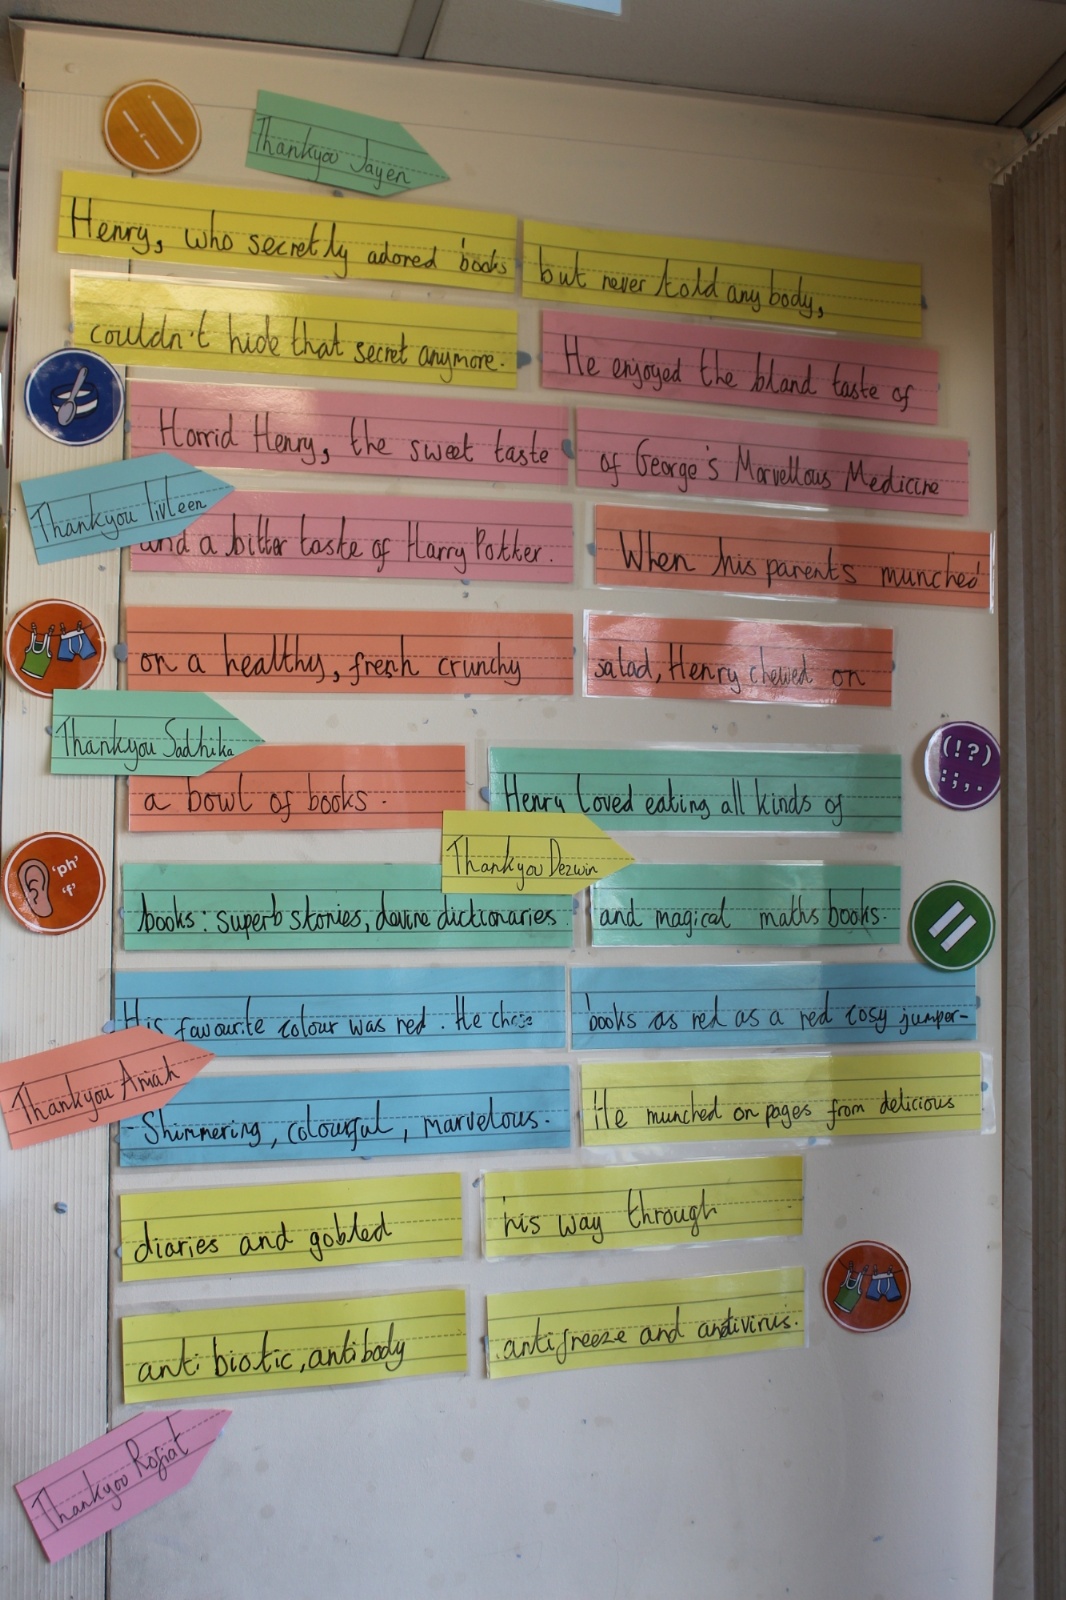 Thankyou Jayen
Henry, who secretly adored books
but never told any body,
couldn't hide that secret anymore.
He enjoyed the bland taste of
Horrid Henry, the sweet taste
of George's Marvellous Medicine
Thankyou
and a bitter taste of Harry Potter.
When his parents munched
on a healthy, fresh crunchy
salad, Henry chewed on
Thankyou Sadhika
a bowl of books.
Henry loved eating all kinds of
(!?)
:;,.
Thankyou Dezwin
'ph'
'f'
books: superb stories, devine dictionaries
and magical maths books.
His favourite colour was red. He chose
books as red as a red cosy jumper-
Thankyou Amiah
-Shimmering, colourful, marvelous.
He munched on pages from delicious
diaries and gobled
his way through
anti biotic, antibody
antifreeze and antivirus.
Thankyou Rofiat